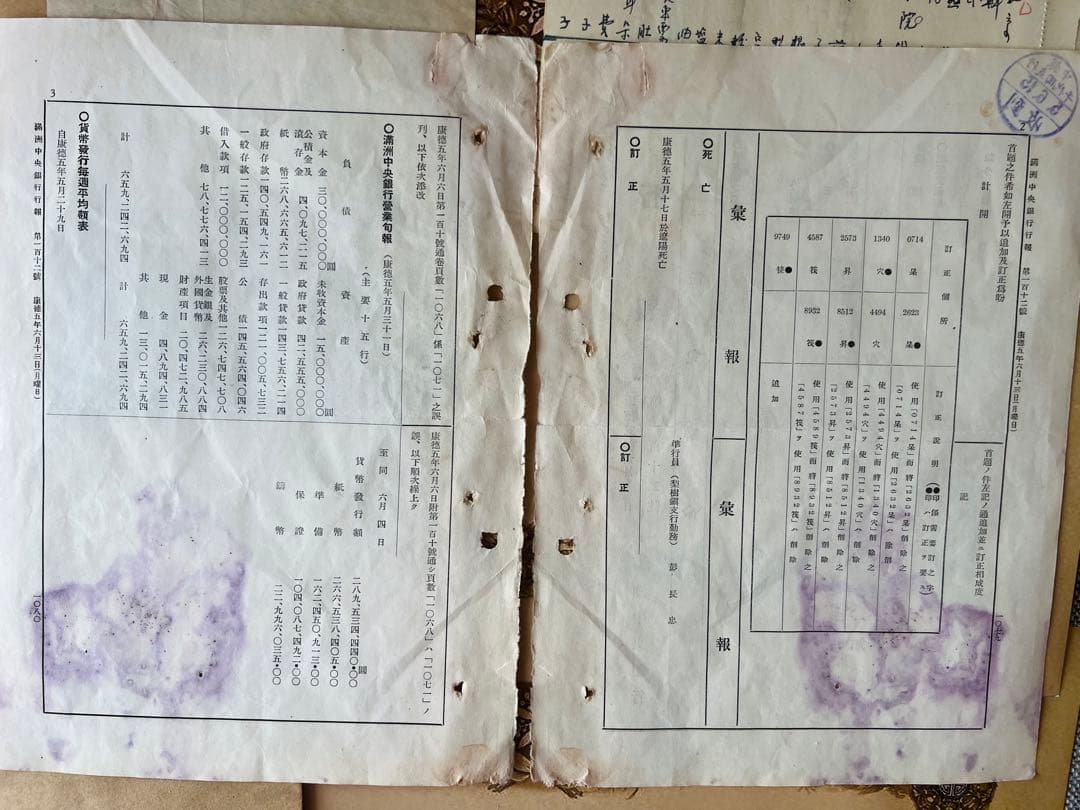 滿洲中央銀行行報　第一百十二號　康德五年六月十三日(月曜日)
一〇七九
首題之件希如左開予以追加及訂正爲盼
計開
首題ノ件左記ノ通追加並ニ訂正相成度
記
訂正個所
訂正說明(●印係需要訂正之字 ●印ハ訂正ヲ要ス)
0714　屎
2623　屎●
使用「0714屎」而將「2632屎」削除之
「0714屎」ヲ使用「2632屎」ハ削除
1340　穴●
4494　穴
使用「4494穴」而將「1340穴」削除之
「4494穴」ヲ使用「1340穴」ハ削除
2573　昇
8512　昇●
使用「2573昇」而將「8512昇」削除之
「2573昇」ヲ使用「8512昇」ハ削除
4587　筏
8932　筏●
使用「4589筏」而將「8932筏」削除之
「4587筏」ヲ使用「8932筏」ハ削除
9749　●
追加
彙報
彙報
〇死亡
康德五年五月十七日於遼陽死亡
準行員(梨樹鎭支行勤務)　彭長忠
〇訂正
〇訂正
3
滿洲中央銀行行報　第一百十二號　康德五年六月十三日(月曜日)
一〇八〇
康德五年六月六日第一百十號通卷頁數「一〇六八」係「一〇七一」之誤
刊、以下依次遞改
康德五年六月六日附第一百十號通シ頁數「一〇六八」ハ「一〇七一」ノ
誤、以下順次繰上ク
〇滿洲中央銀行營業旬報(康德五年五月三十一日)(主要十五行)
負債
資本金　三〇、〇〇〇、〇〇〇圓
公積金及滾存金　四、〇九七、二一五
紙幣　二六八、六六五、六一二
政府存款　一四〇、五四九、一六一
一般存款　一二五、一五四、二九三
借入款項　一二、〇〇〇、〇〇〇
其他　七八、七七六、四一三
計　六五九、二四二、六九四
資產
未收資本金　一五、〇〇〇、〇〇〇圓
政府貸款　四二、五五五、〇〇〇
一般貸款　一四三、七五六、二一四
存出款項　一二一、〇〇五、七三二
公債　一四五、五六四、〇四六
股票及其他　一二六、七四七、七〇八
生金銀及外國貨幣　二六、二三〇、八八四
財產項目　二〇、四七二、九八五
現金　四、八九四、八三一
其他　一三、〇一五、二九四
六五九、二四二、六九四
〇貨幣發行每週平均額表
自康德五年五月二十九日
至同　六月四日
貨幣發行額　二八九、五三四、四四〇・〇〇圓
紙幣　二六六、五三八、四〇五・〇〇
準備　一六二、四五〇、九一三・〇〇
保證　一〇四、〇八七、四九二・〇〇
鑄幣　二二、九九六、〇三五・〇〇